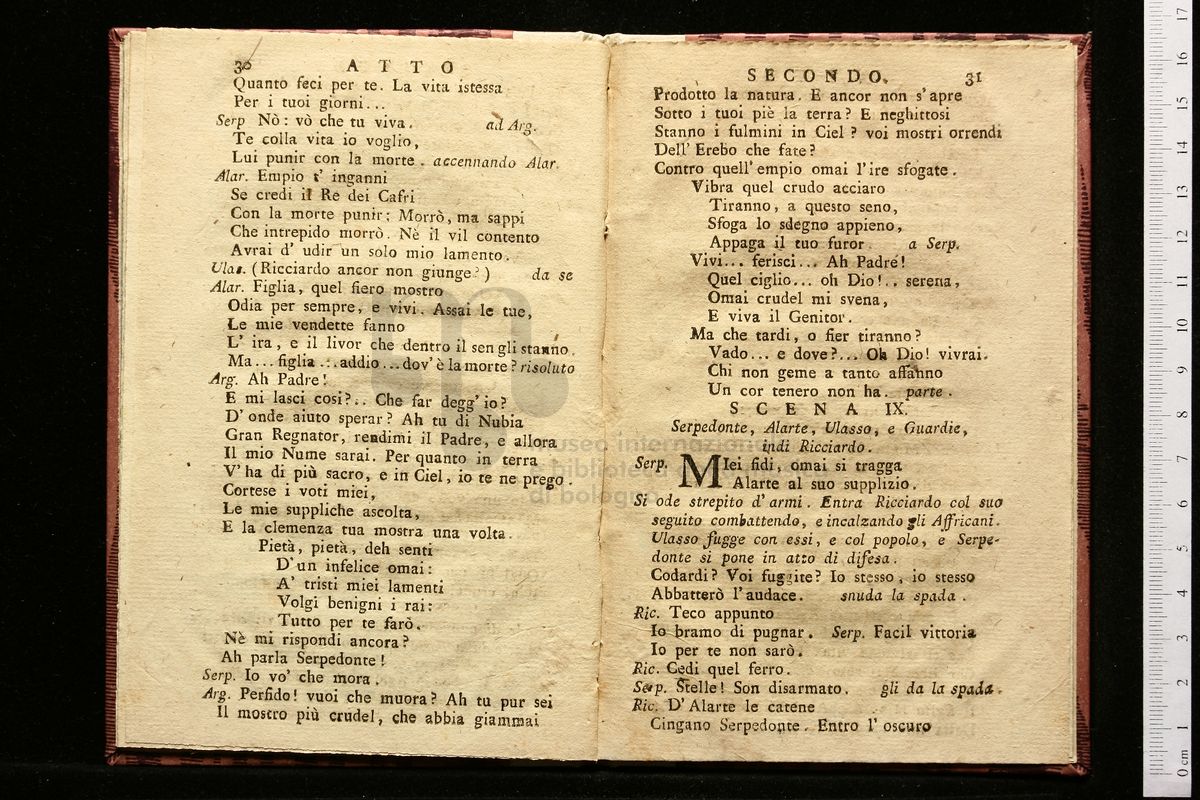 30 A T T O
Quanto feci per te. La vita istessa
Per i tuoi giorni...
Serp Nò: vò che tu viva. ad Arg.
Te colla vita io voglio,
Lui punir con la morte. accennando Alar.
Alar. Empio t' inganni
Se credi il Re dei Cafri
Con la morte punir; Morrò, ma sappi
Che intrepido morrò. Nè il vil contento
Avrai d' udir un solo mio lamento.
Ulas. (Ricciardo ancor non giunge?) da se
Alar. Figlia, quel fiero mostro
Odia per sempre, e vivi. Assai le tue,
Le mie vendette fanno
L' ira, e il livor che dentro il sen gli stanno.
Ma... figlia... addio... dov' è la morte? risoluto
Arg. Ah Padre!
E mi lasci così?.. Che far degg' io?
D' onde aiuto sperar? Ah tu di Nubia
Gran Regnator, rendimi il Padre, e allora
Il mio Nume sarai. Per quanto in terra
V' ha di più sacro, e in Ciel, io te ne prego.
Cortese i voti miei,
Le mie suppliche ascolta,
E la clemenza tua mostra una volta.
Pietà, pietà, deh senti
D' un infelice omai:
A' tristi miei lamenti
Volgi benigni i rai:
Tutto per te farò.
Nè mi rispondi ancora?
Ah parla Serpedonte!
Serp. Io vo' che mora.
Arg. Perfido! vuoi che muora? Ah tu pur sei
Il mostro più crudel, che abbia giammai
SECONDO. 31
Prodotto la natura. E ancor non s' apre
Sotto i tuoi piè la terra? E neghittosi
Stanno i fulmini in Ciel? voi mostri orrendi
Dell' Erebo che fate?
Contro quell' empio omai l' ire sfogate.
Vibra quel crudo acciaro
Tiranno, a questo seno,
Sfoga lo sdegno appieno,
Appaga il tuo furor. a Serp.
Vivi... ferisci... Ah Padre!
Quel ciglio... oh Dio!.. serena,
Omai crudel mi svena,
E viva il Genitor.
Ma che tardi, o fier tiranno?
Vado... e dove?... Oh Dio! vivrai.
Chi non geme a tanto affanno
Un cor tenero non ha. parte.
S C E N A IX.
Serpedonte, Alarte, Ulasso, e Guardie,
indi Ricciardo.
Serp. MIei fidi, omai si tragga
Alarte al suo supplizio.
Si ode strepito d' armi. Entra Ricciardo col suo
seguito combattendo, e incalzando gli Affricani.
Ulasso fugge con essi, e col popolo, e Serpe-
donte si pone in atto di difesa.
Codardi? Voi fuggite? Io stesso, io stesso
Abbatterò l' audace. snuda la spada.
Ric. Teco appunto
Io bramo di pugnar. Serp. Facil vittoria
Io per te non sarò.
Ric. Cedi quel ferro.
Serp. Stelle! Son disarmato. gli da la spada.
Ric. D' Alarte le catene
Cingano Serpedonte. Entro l' oscuro
museo internazionale
e biblioteca della musica
di bologna
0 cm 1 2 3 4 5 6 7 8 9 10 11 12 13 14 15 16 17